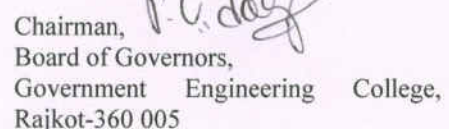 Chairman,
Board of Governors,
Government Engineering College,
Rajkot-360 005